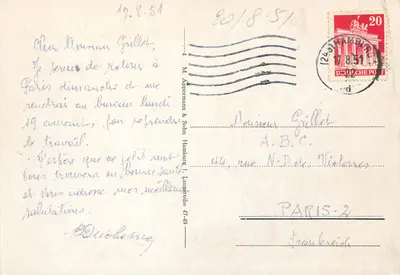 17.8.51
20/8/51
Cher Monsieur Grillot,
Je pense de retour à
Paris dimanche et me
rendrai au bureau lundi
19 courant, pour reprendre
le travail.
J'espère que ce petit mot
vous trouvera en bonne santé
et vous adresse mes meilleures
salutations.
M. Appermann & Sohn Hamburg 1, Langereihe 47-49
20
DEUTSCHE POST
(24a) HAMBURG
17.8.51
d
Monsieur Grillot
A.B.C.
44, rue N-D. des Victoires
PARIS-2
Frankreich